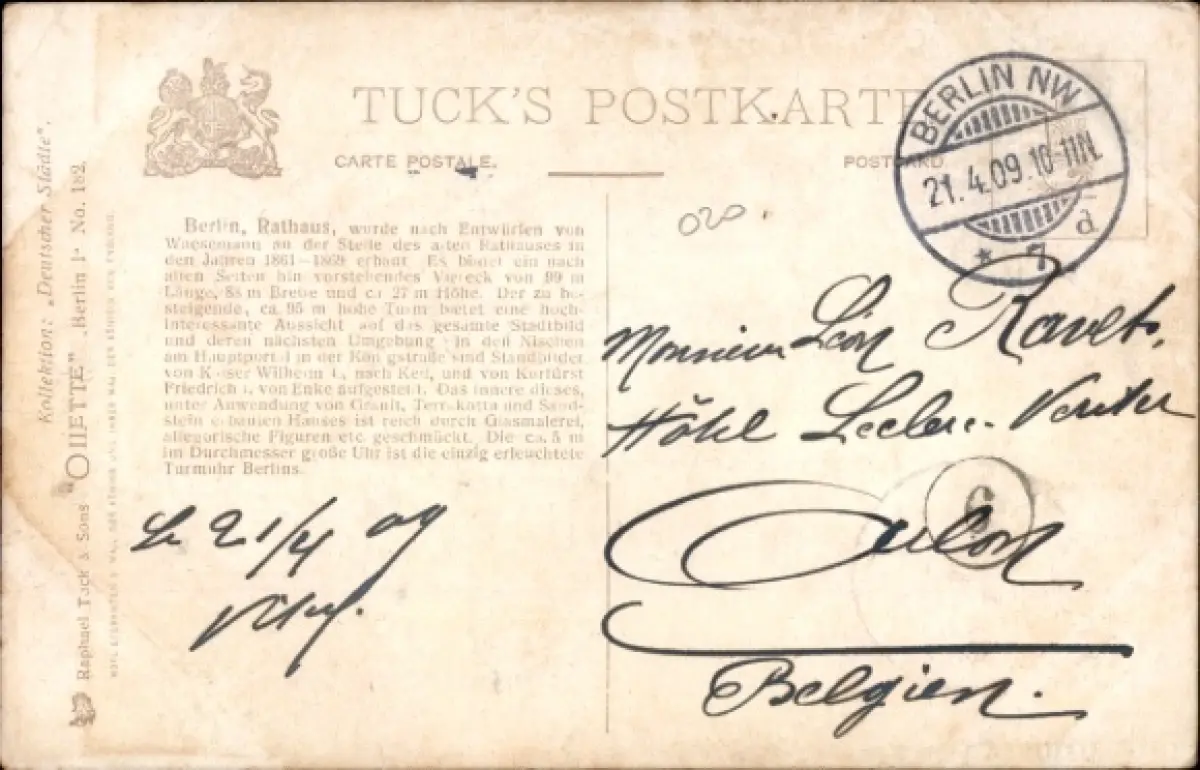 TUCK'S POSTKARTE
CARTE POSTALE.
POSTCARD
BERLIN NW
21.4.09.10-11N.
* 7 d
020.
Kollektion: „Deutscher Städte".
Raphael Tuck & Söns "OILETTE" „Berlin I" No. 182.
Berlin, Rathaus, wurde nach Entwürfen von
Waesemann an der Stelle des alten Rathauses in
den Jahren 1861—1869 erbaut. Es bildet ein nach
allen Seiten hin vorstehendes Viereck von 99 m
Länge, 88 m Breite und ca 27 m Höhe. Der zu be-
steigende, ca. 95 m hohe Turm bietet eine hoch-
interessante Aussicht auf das gesamte Stadtbild
und deren nächsten Umgebung. In den Nischen
am Hauptportal in der Königstraße sind Standbilder
von Kaiser Wilhelm I., nach Keil, und von Kurfürst
Friedrich I. von Enke aufgestellt. Das Innere dieses,
unter Anwendung von Granit, Terrakotta und Sand-
stein erbauten Hauses ist reich durch Glasmalerei,
allegorische Figuren etc. geschmückt. Die ca. 5 m
im Durchmesser große Uhr ist die einzig erleuchtete
Turmuhr Berlins.
Monsieur Léon
Hôtel Leclerc
6
Le 21/4 09
Belgien.